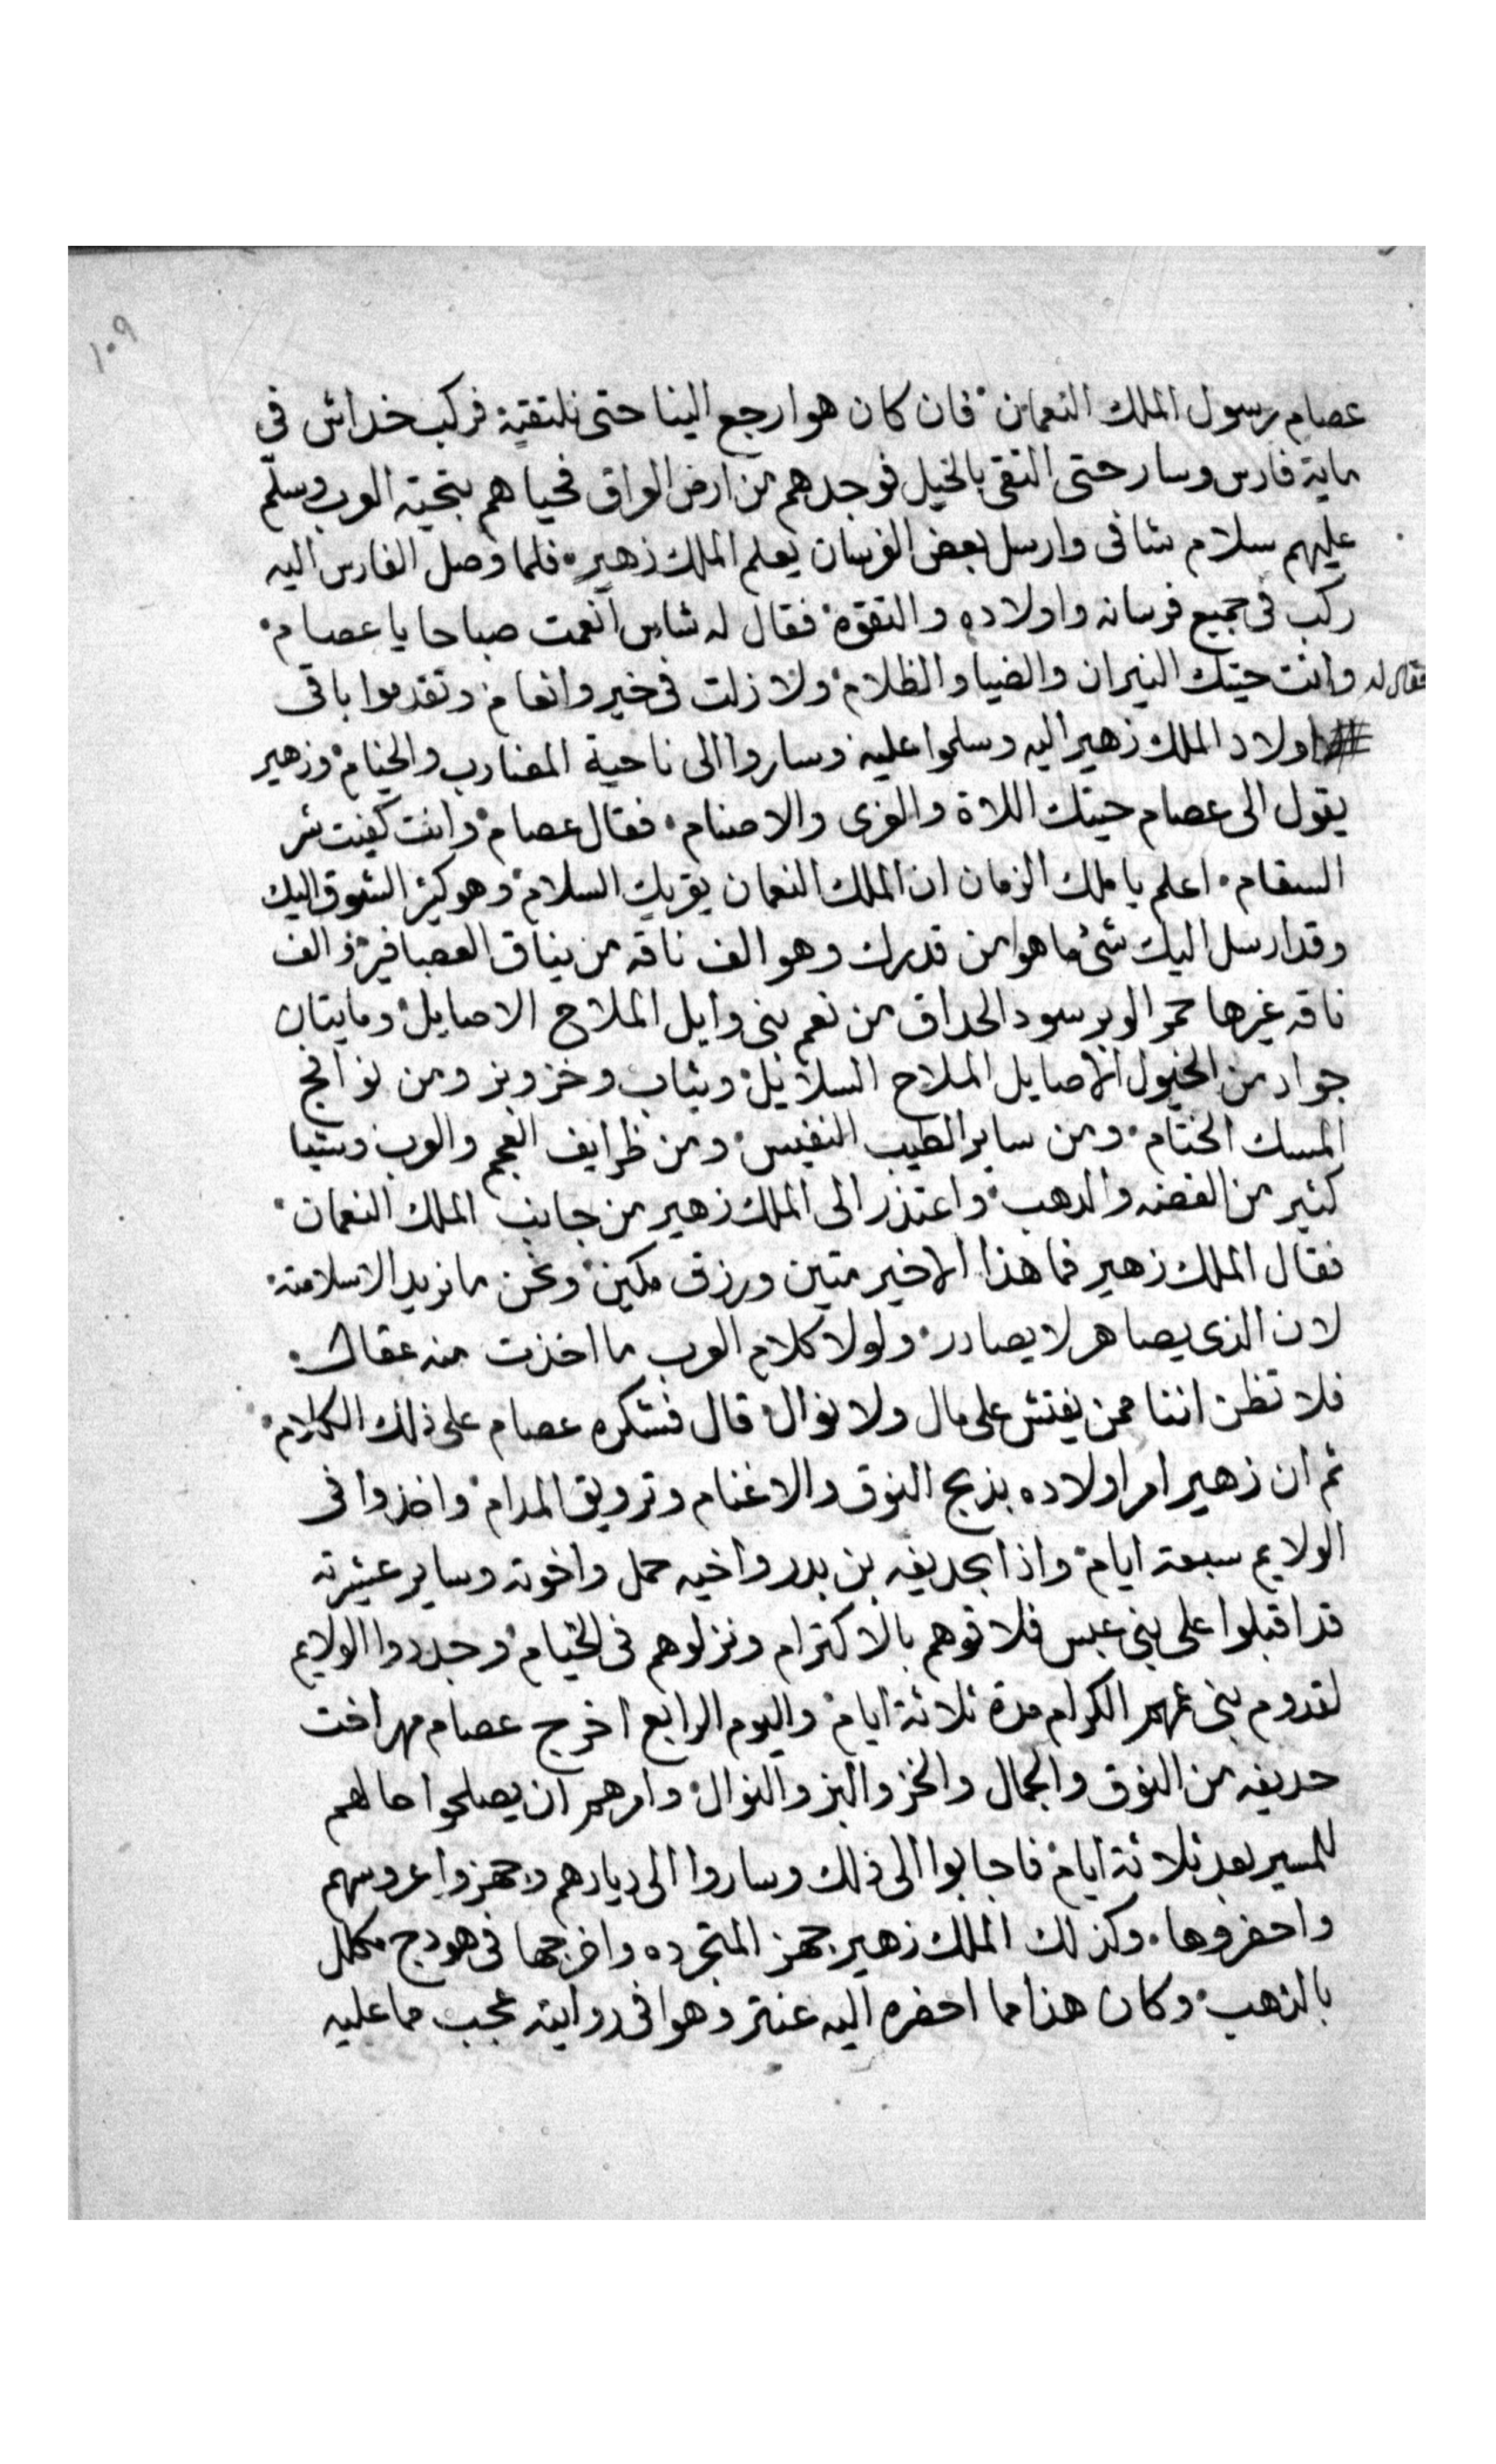 ١٠٩
عصام رسول الملك النعمان فان كان هوا رجع الينا حتى نلتقيه فركب خداش فى
ماية فارس وسار حتى التقى بالخيل فوجدهم من ارض العراق فحياهم بتحية العرب وسلم
عليهم سلام شافى وارسل بعض الفرسان يعلم الملك زهير فلما وصل الفارس اليه
ركب فى جميع فرسانه واولاده والتقوه فقال له شاس انعمت صباحا يا عصام
فقال له وانت حيتك النيران والضيا والظلام ولا زلت فى خير وانعام وتقدموا باقى
اولاد الملك زهير اليه وسلموا عليه وساروا الى ناحية المضارب والخيام وزهير
يقول الى عصام حيتك اللاة والعزى والاصنام فقال عصام وانت كفيت شر
السقام اعلم يا ملك الزمان ان الملك النعمان يقريك السلام وهو كثير الشوق اليك
وقد ارسل اليك شئ ما هوا من قدرك وهو الف ناقه من نياق العصافير والف
ناقه غيرها حمر الوبر سود الحداق من نعم بنى وايل الملاح الاصايل ومايتان
جواد من الخيول الاصايل الملاح السلايل وثياب وخز وبز ومن نوافج
المسك الختام ومن ساير الطيب النفيس ومن ظرايف العجم والعرب وشيا
كثير من الفضه والدهب واعتذر الى الملك زهير من جانب الملك النعمان
فقال الملك زهير فما هذا الا خير متين ورزق مكين ونحن ما نريد الا سلامته
لان الذى يصاهر لا يصادر ولولا كلام العرب ما اخذت منه عقال
فلا تظن اننا ممن يفتش على مال ولا نوال قال فشكره عصام على ذلك الكلام
ثم ان زهير امر اولاده بذبح النوق والاغنام وترويق المدام واخذوا فى
الولايم سبعة ايام واذا بحديفه بن بدر واخيه حمل واخوته وساير عشيرته
قد اقبلوا على بنى عبس فلاقوهم بالاكترام ونزلوهم فى الخيام وجددوا الولايم
لقدوم بنى عمهم الكرام مدة ثلاثة ايام واليوم الرابع اخرج عصام مهر اخت
حديفه من النوق والجمال والخز والبز والنوال وامرهم ان يصلحوا حالهم
للمسير بعد ثلاثة ايام فاجابوا الى ذلك وساروا الى ديارهم وجهزوا عروسهم
واحضروها وكذلك الملك زهير جهز المتجرده واخرجها فى هودج مكلل
بالذهب وكان هذا مما احضره اليه عنتر وهوا فى روايته عجب مما عليه